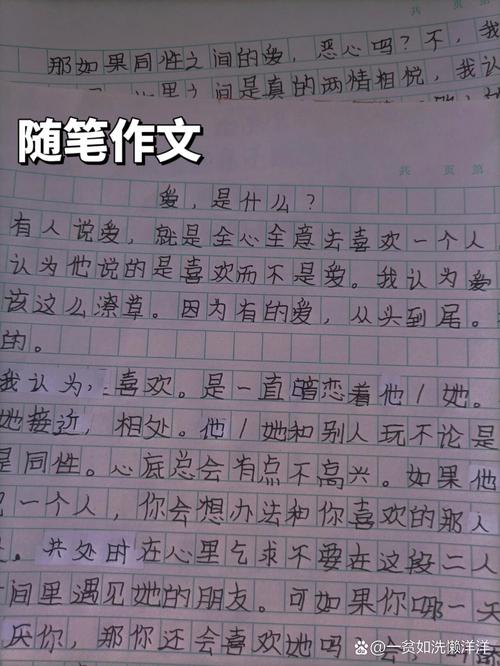 共 页 第
那如果同性之间的爱，恶心吗？不，我
之间是真的两情相悦，我认
随笔作文
共 页 第
爱，是什么？
有人说爱，就是全心全意去喜欢一个人
认为他说的是喜欢而不是爱。我认为爱
该这么潦草。因为有的爱，从头到尾。
的。
我认为，喜欢。是一直暗恋着他/她。
她接近，相处。他/她和别人玩不论是
是同性。心底总会有点不高兴。如果他
一个人，你会想办法和你喜欢的那人
。共处时在心里乞求不要在这段二人
间里遇见她的朋友。可如果你哪一天
厌你，那你还会喜欢她吗？会
@一贫如洗懒洋洋